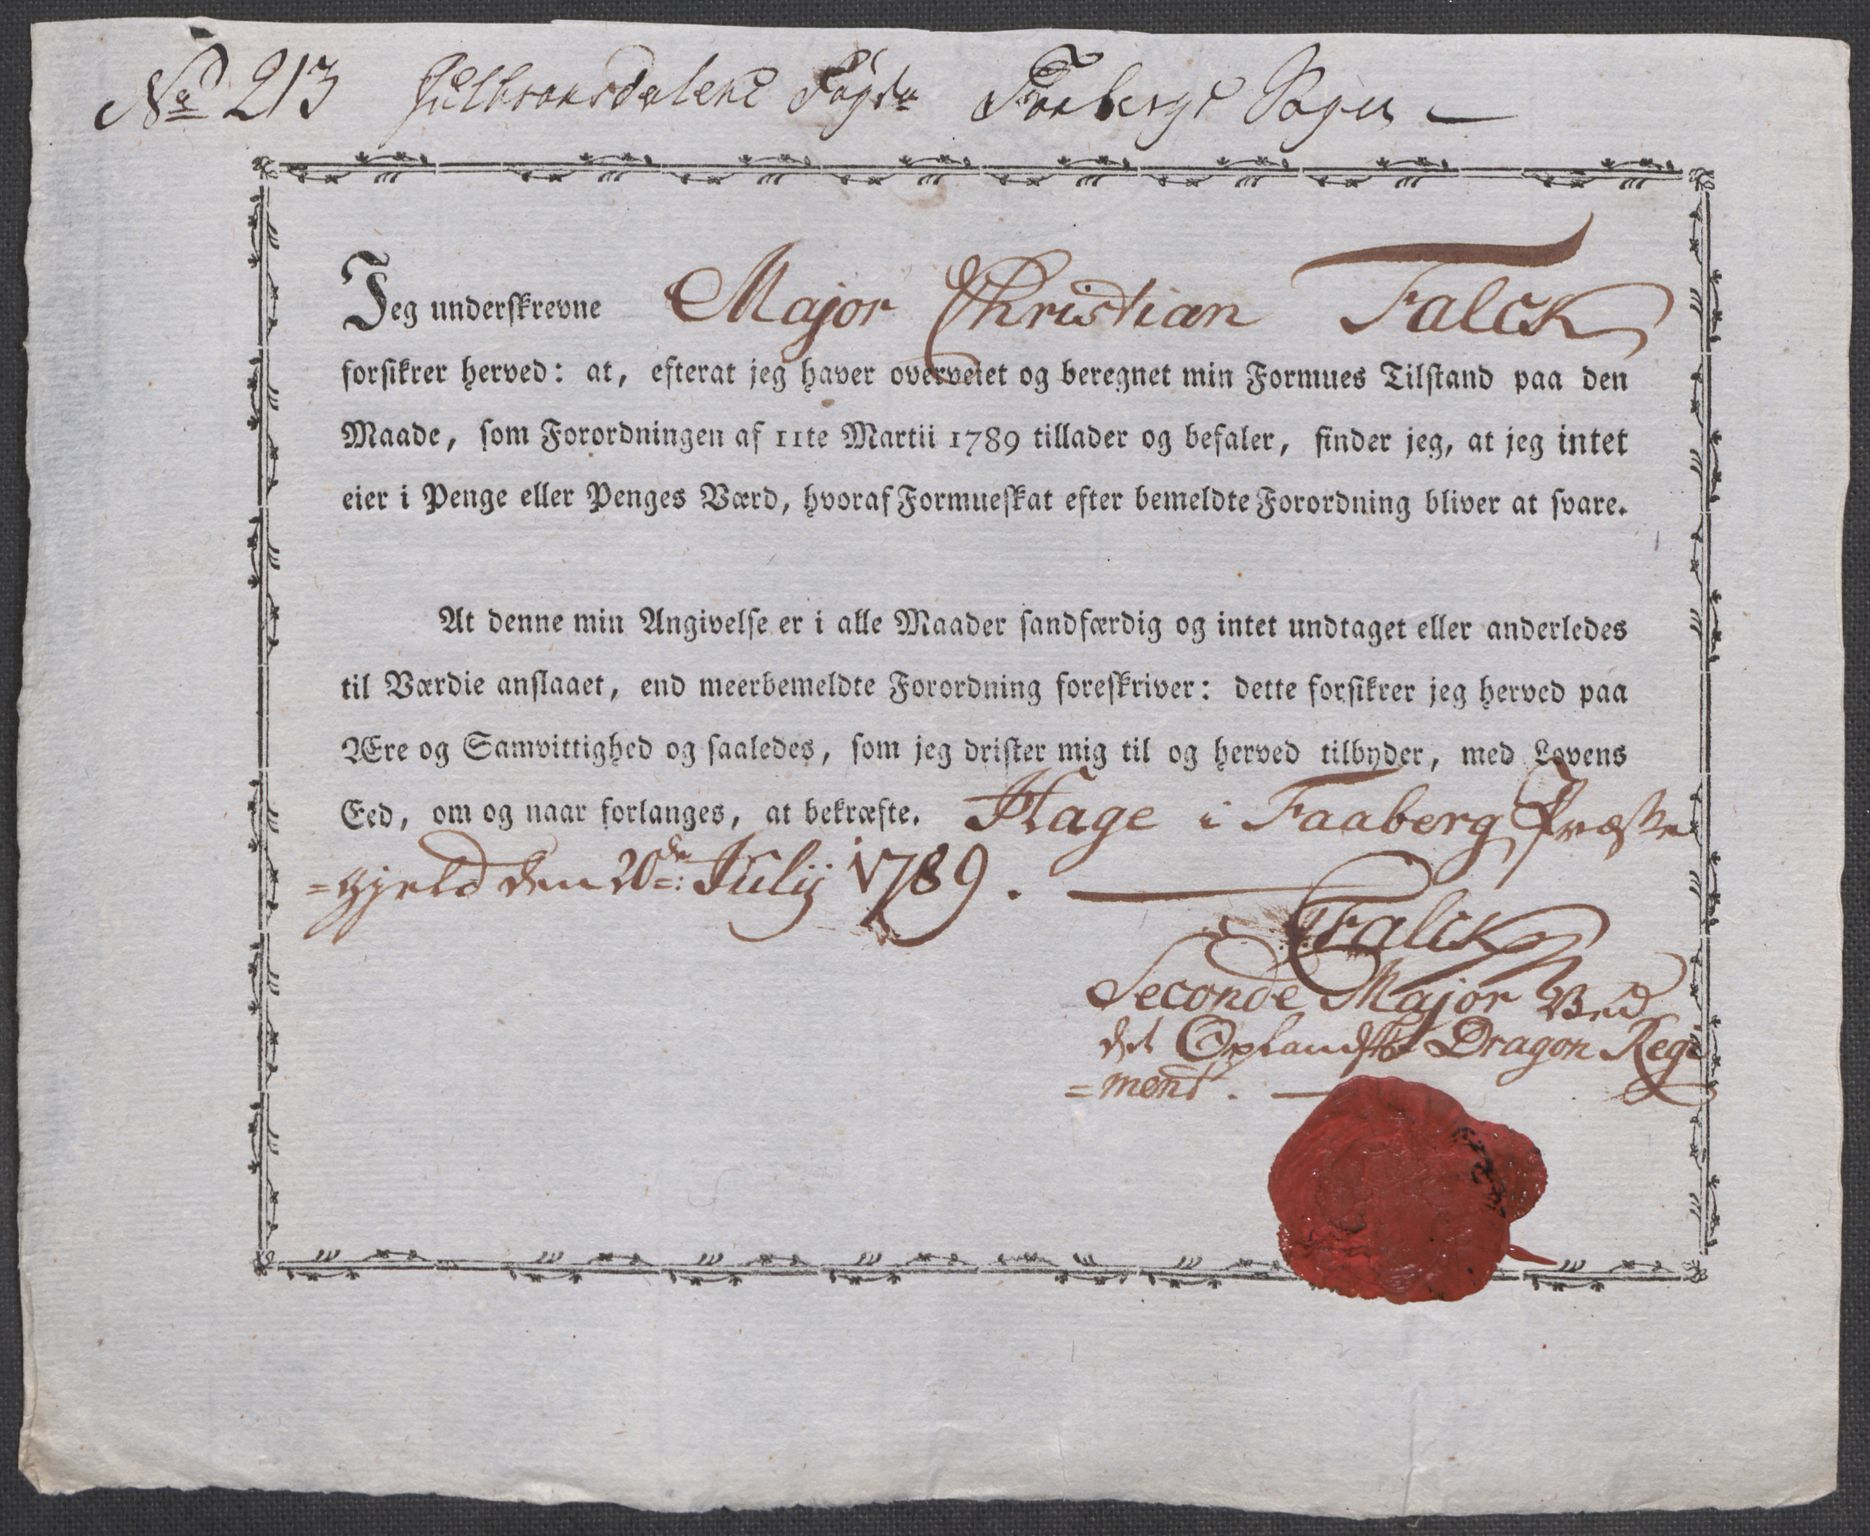 No 213 Gulbransdalens Fogd. Faabergs Sogn
Jeg underskrevne Major Christian Falck
forsikrer herved: at, efterat jeg haver overveiet og beregnet min Formues Tilstand paa den
Maade, som Forordningen af 11te Martii 1789 tillader og befaler, finder jeg, at jeg intet
eier i Penge eller Penges Værd, hvoraf Formueskat efter bemeldte Forordning bliver at svare.
At denne min Angivelse er i alle Maader sandfærdig og intet undtaget eller anderledes
til Værdie anslaaet, end meerbemeldte Forordning foreskriver: dette forsikrer jeg herved paa
Ære og Samvittighed og saaledes, som jeg drister mig til og herved tilbyder, med Lovens
Eed, om og naar forlanges, at bekræfte. Hage i Faaberg Præste
=gjeld den 20de: Julij 1789.
Falck
Seconde Major Ved
det Oplandske Dragon Regi
=ment.